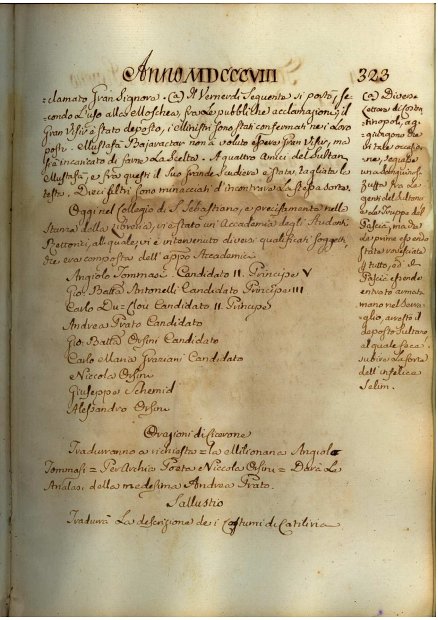 Anno MDCCCVIII
323
=clamato Gran Signore. (a) Il Venerdì Seguente si portò, se-
condo l'uso alla Moschea, fra le pubbliche acclamazioni; il
Gran Visir è stato deposto, i Ministri sono stati confermati nei loro
posti. Mustafà Bajaractar non à voluto essere Gran Visir, ma
si è incaricato di farne la scelta. A quattro Amici del Sultan
Mustafà, e fra questi il Suo grande Scudiere è stata tagliata la
testa. Dieci altri sono minacciati d'incontrare la stessa sorte.
Oggi nel Collegio di S. Sebastiano, e precisamente nella
Stanza della Libreria, vi è stato un'Accademia degli Studenti
Rettorici, al quale vi è intervenuto diversi qualificati soggetti,
ed era composta dell'appo Accademici
Angiolo Tommasi Candidato II. Principe V
Gio: Batta Antonelli Candidato Principe III
Carlo Du=Clou Candidato II. Principe
Andrea Prato Candidato
Gio: Batta Orsini Candidato
Carlo Maria Graziani Candidato
Niccola Orsini
Giuseppe Schemid
Alessandro Orsini
Orazioni di Cicerone
Tradurranno a richiesta = la Miloniana Angiolo
Tommasi = Per Archia Poeta Niccola Orsini = Darà la
Analasi della medesima Andrea Prato.
Sallustio
Tradurrà la descrizione dei Costumi di Catilina
(a) Diverse
lettere di Costan
tinopoli, ag-
giungono che
in tale occasio-
ne, seguì
una
Zuffa fra le
genti del Sultano
e la Truppe del
Pascià, ma
de prime essendo
stata rovesciata
il tutto, ed il
Pascià essendo
entrato armata
mano nel Serra-
glio, arrestò il
deposto Sultano
al quale fece
subire la sorte
dell'infelice
Selim.